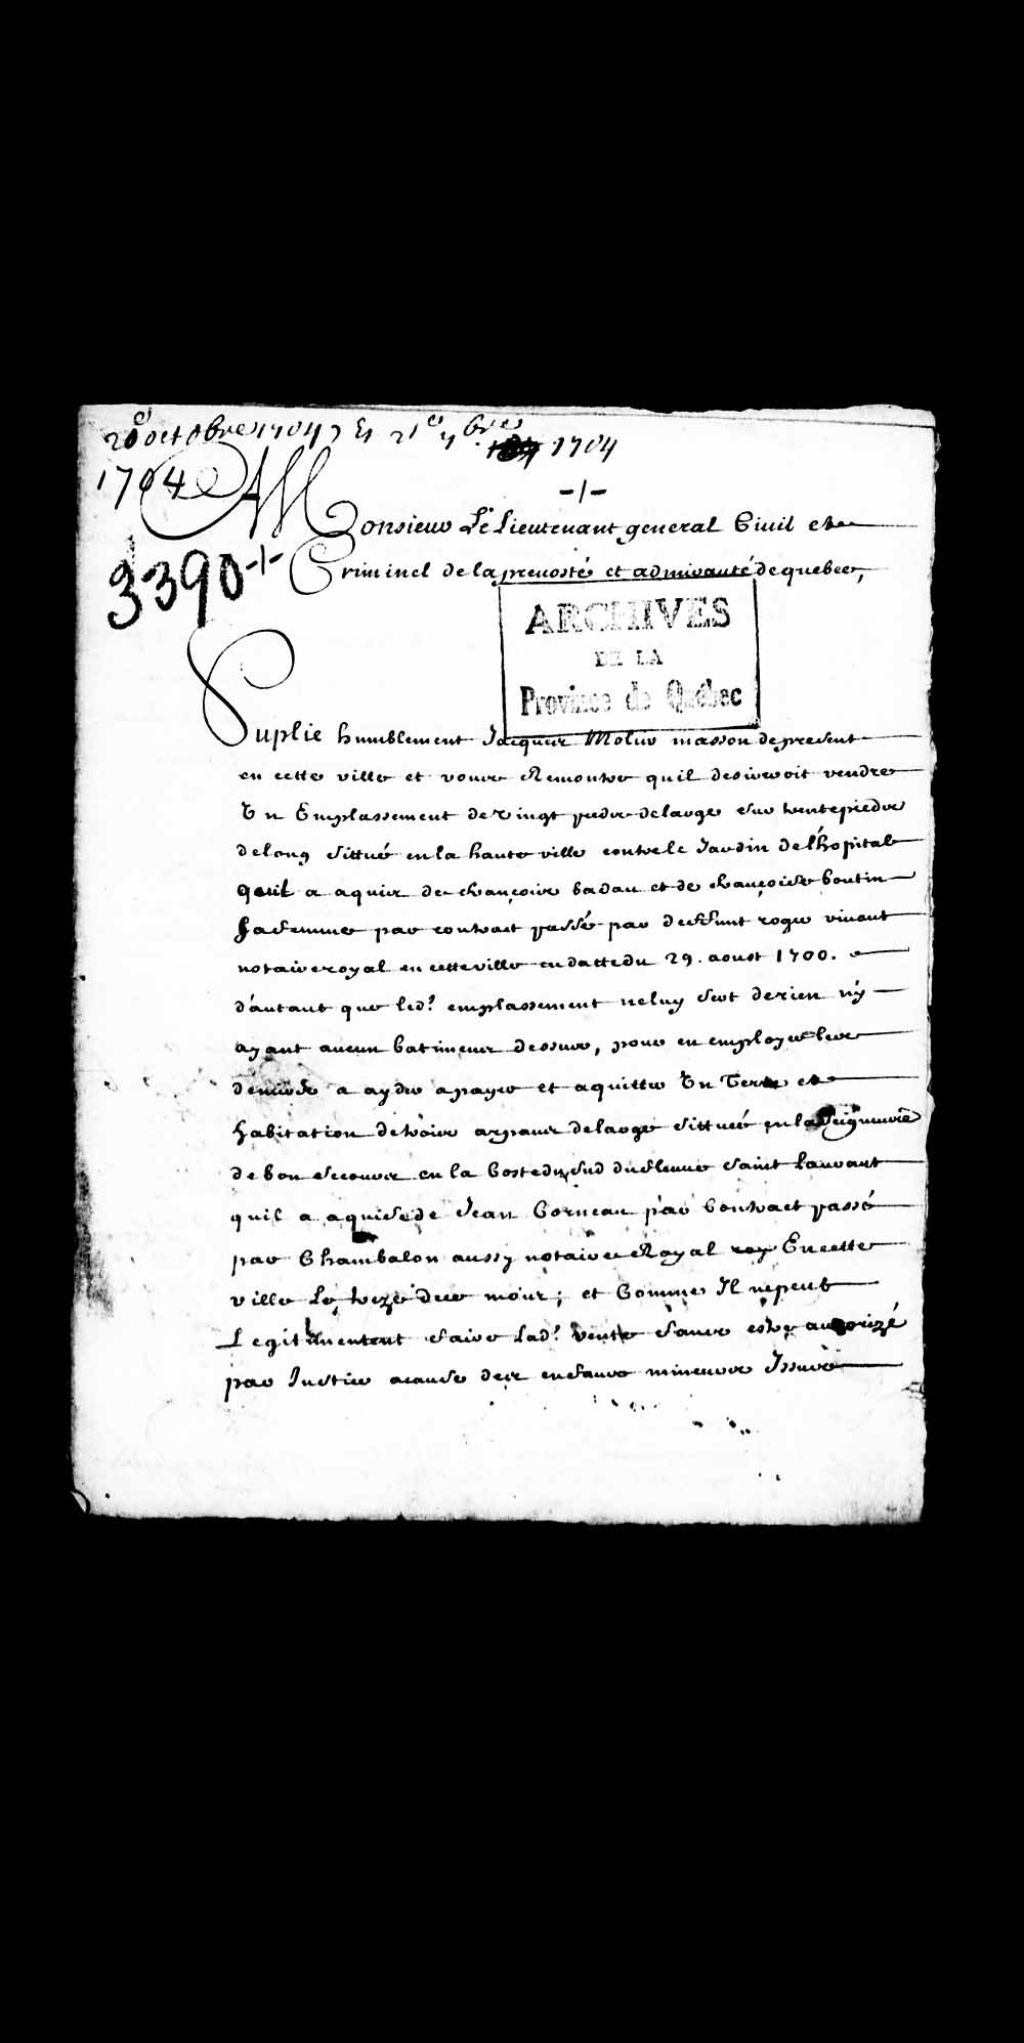 20e octobre 1704 Et 21e 9bre 1704
1704
-/-
A Monsieur Le Lieutenant general Ciuil et
3390 -/- Criminel de la preuosté et admirauté de quebec,
ARCHIVES
DE LA
Province de Québec
Suplie humblement Jacques Moleur masson de present
en cette ville et vous Remontre quil desireroit vendre
Un Emplassement de vingt piedz de large sur trente piedz
de long sittué en la haute ville contre le Jardin de l'hopital
quil a aquis de francois badau et de francoise boutin
sa femme par contract passé par deffunt roger viuant
notaire royal en cette ville en datte du 29. aoust 1700. et
d'autant que led. emplassement ne luy sert de rien n'y
ayant aucun batimens dessus, pour en employer les
deniers a ayder a payer et aquitter Un Terre et
habitation de trois arpans de large sittuée en la Seigneurie
de bon secours en la Coste du sud du fleuue saint Laurant
quil a aquise de Jean Corneau par Contract passé
par Chambalon aussy notaire Royal roy En cette
ville Le treze de ce mois; et Comme Il ne peut
Legitimement faire lad. vente sans estre autorizé
par Justice a cause des enfans mineurs Issus